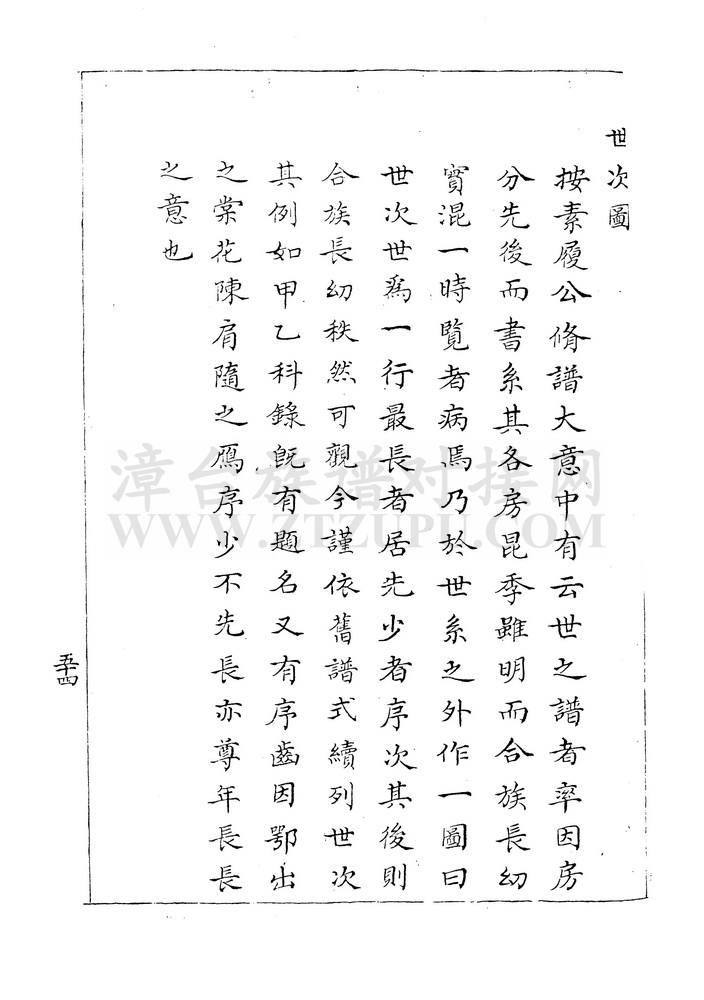 世次圖
按素履公脩譜大意中有云世之譜者率因房
分先後而書系其各房昆季雖明而合族長幼
實混一時覧者病焉乃於世系之外作一圖曰
世次世爲一行最長者居先少者序次其後則
合族長幼秩然可觀今謹依舊譜式續列世次
其例如甲乙科錄旣有題名又有序齒因鄂出
之棠花陳肩隨之鴈序少不先長亦尊年長長
之意也
五十四
漳台族谱对接网
WWW.ZTZUPU.COM